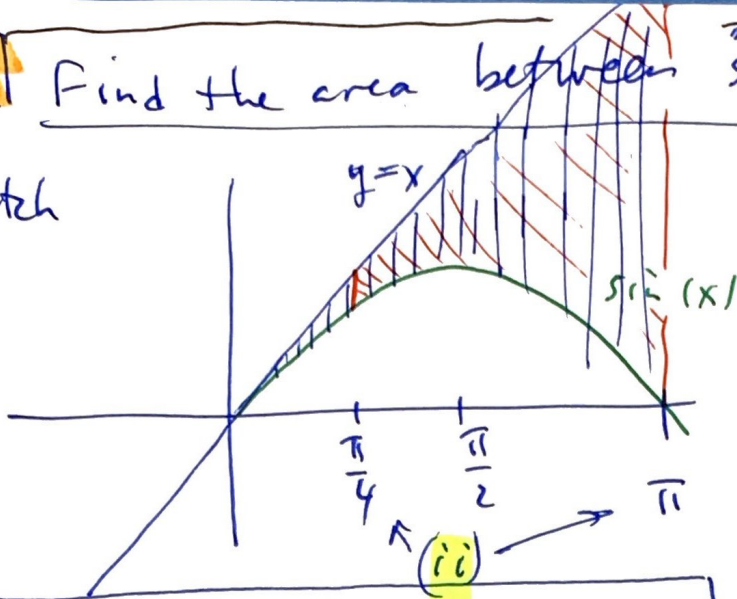 Find the area between
y=x
sin(x)
π/4
π/2
π
(ii)